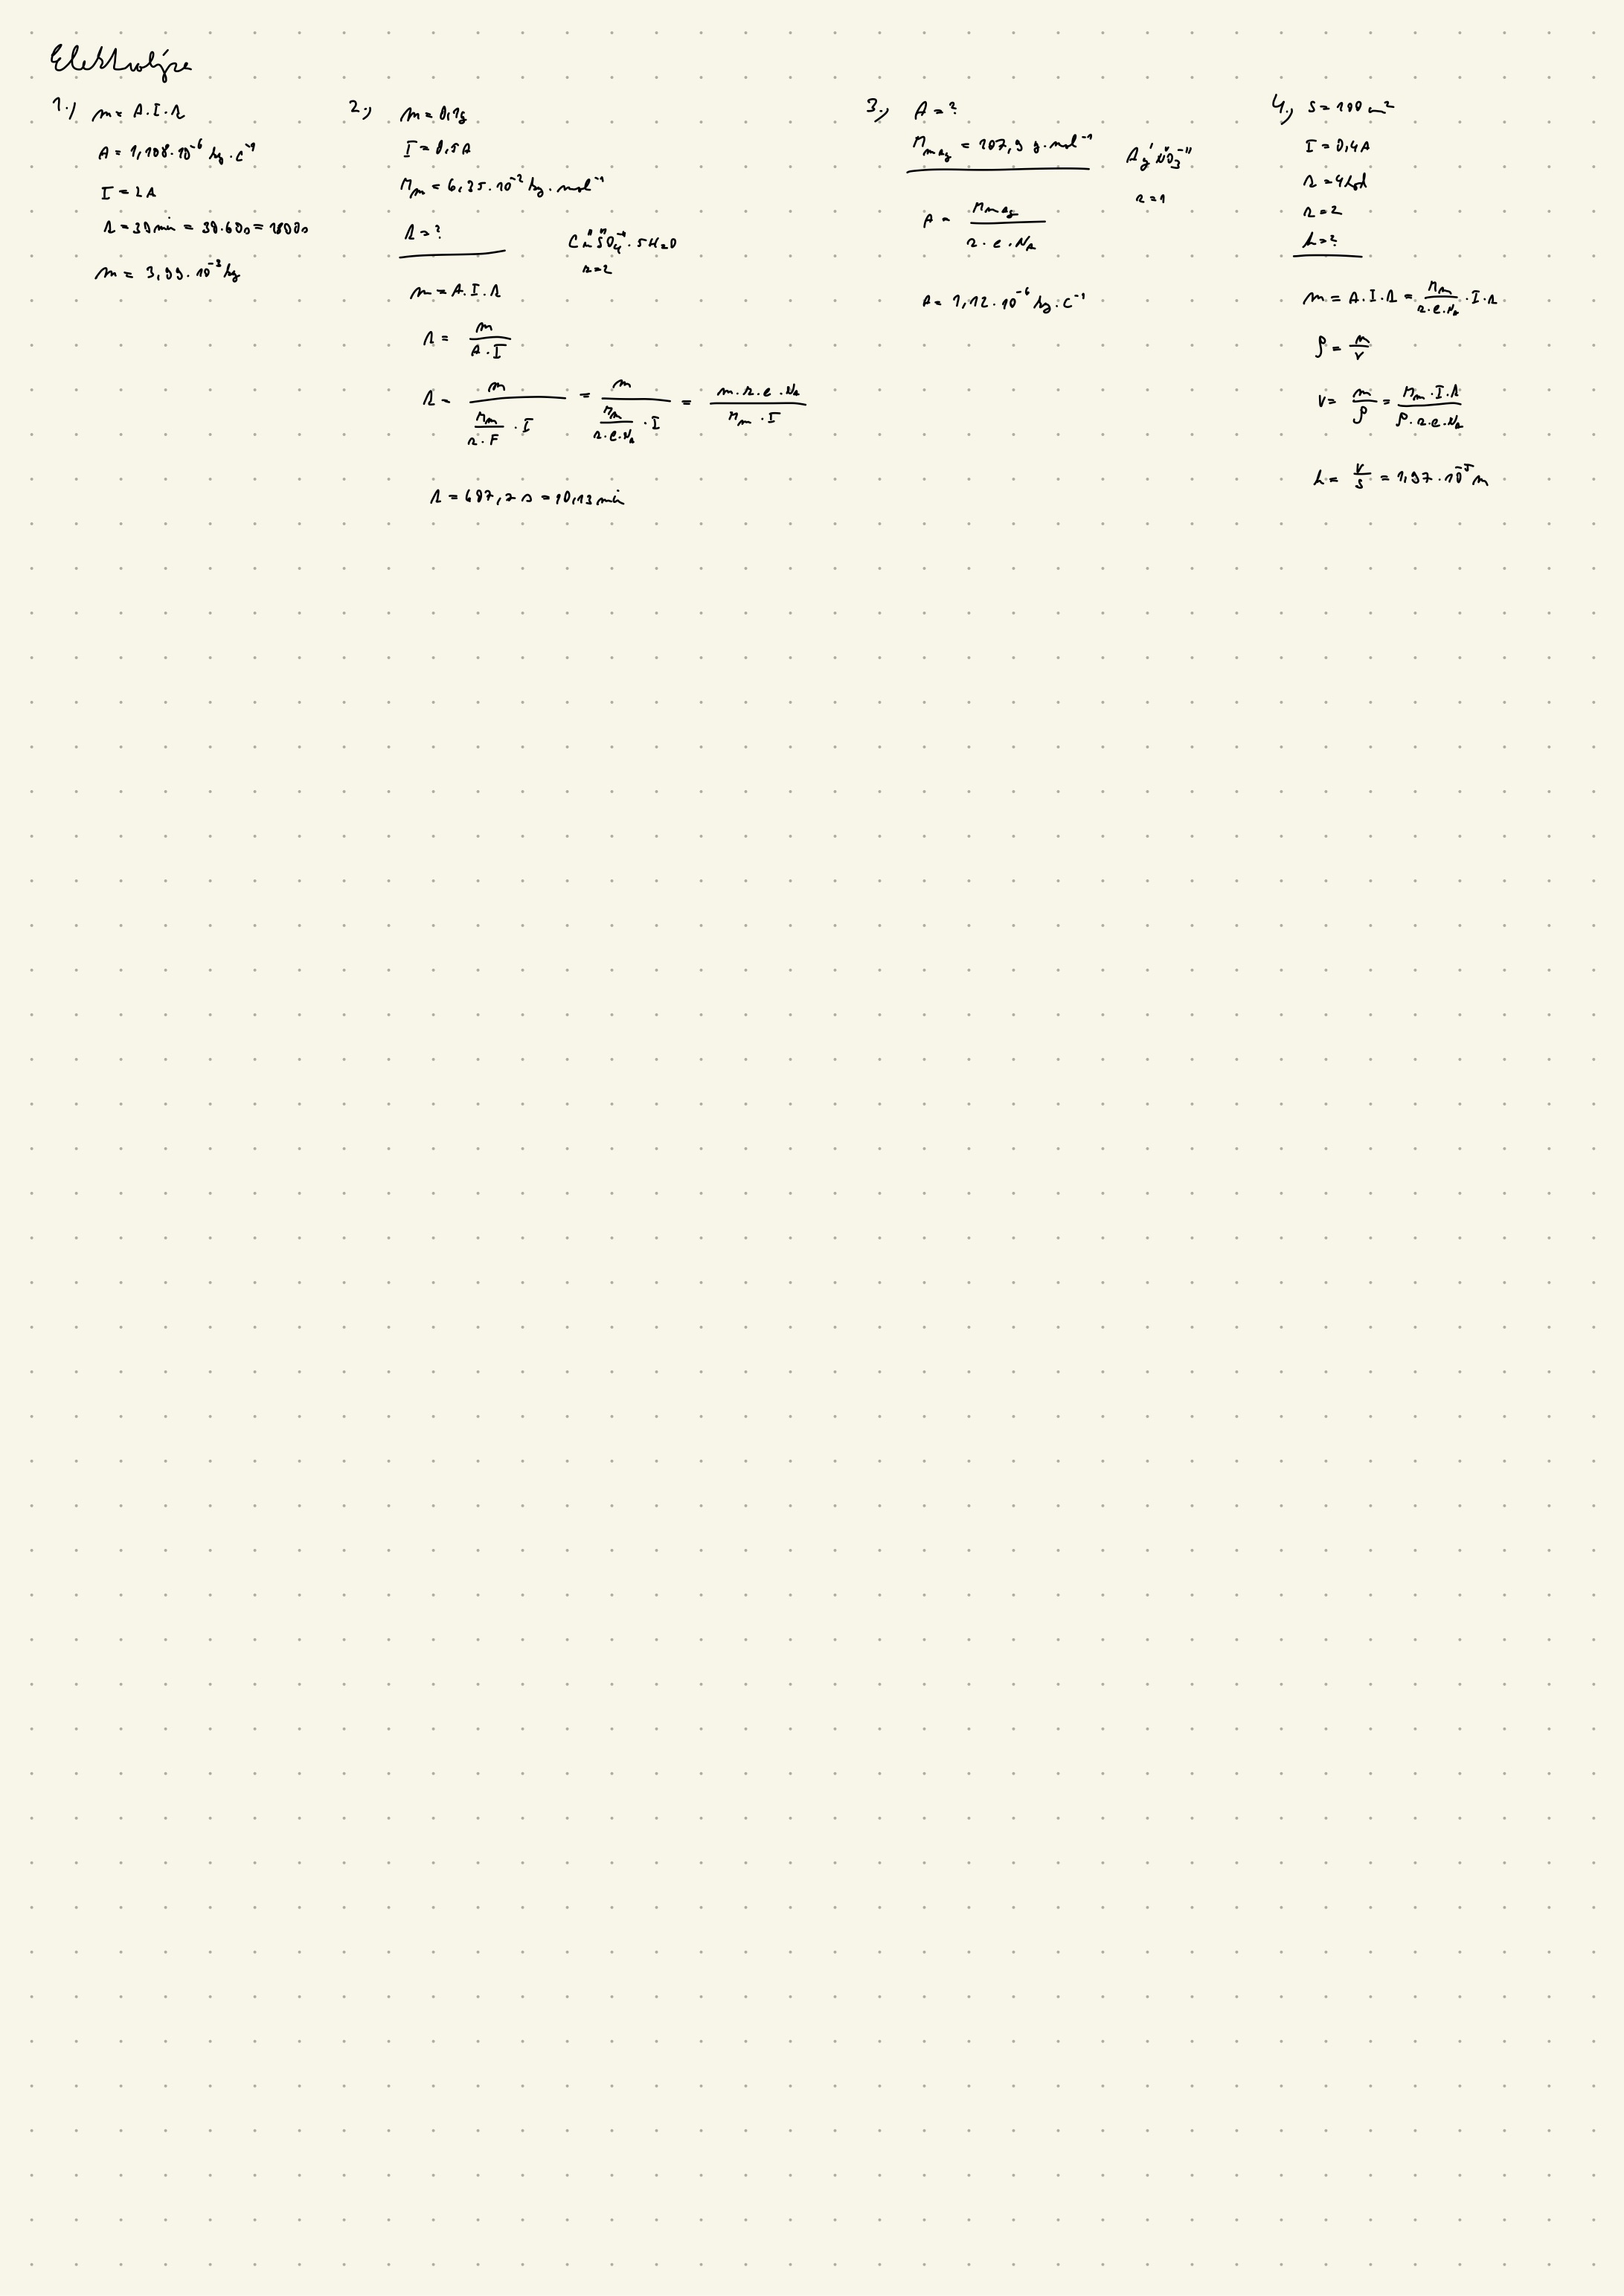 Elektrolýza
1.) m = A.I.t
A = 1,108.10⁻⁶ kg.C⁻¹
I = 2A
t = 30 min = 30.60s = 1800s
m = 3,99.10⁻³ kg
2.) m = 0,1g
I = 0,5A
Mm = 6,35.10⁻² kg.mol⁻¹
t = ?
CuSO₄.5H₂O
z=2
m = A.I.t
t = m / (A.I)
t = m / (Mm/(z.F) . I) = m / (Mm/(z.e.NA) . I) = (m.z.e.NA) / (Mm.I)
t = 607,7 s = 10,13 min
3.) A = ?
MmAg = 107,9 g.mol⁻¹
AgᴵNⱽO₃⁻ᴵᴵ
z=1
A = MmAg / (z.e.NA)
A = 1,12.10⁻⁶ kg.C⁻¹
4.) S = 100 cm²
I = 0,4A
t = 4hod
z = 2
h = ?
m = A.I.t = Mm/(z.e.NA) . I.t
ρ = m/V
V = m/ρ = (Mm.I.t) / (ρ.z.e.NA)
h = V/S = 1,97.10⁻⁵ m